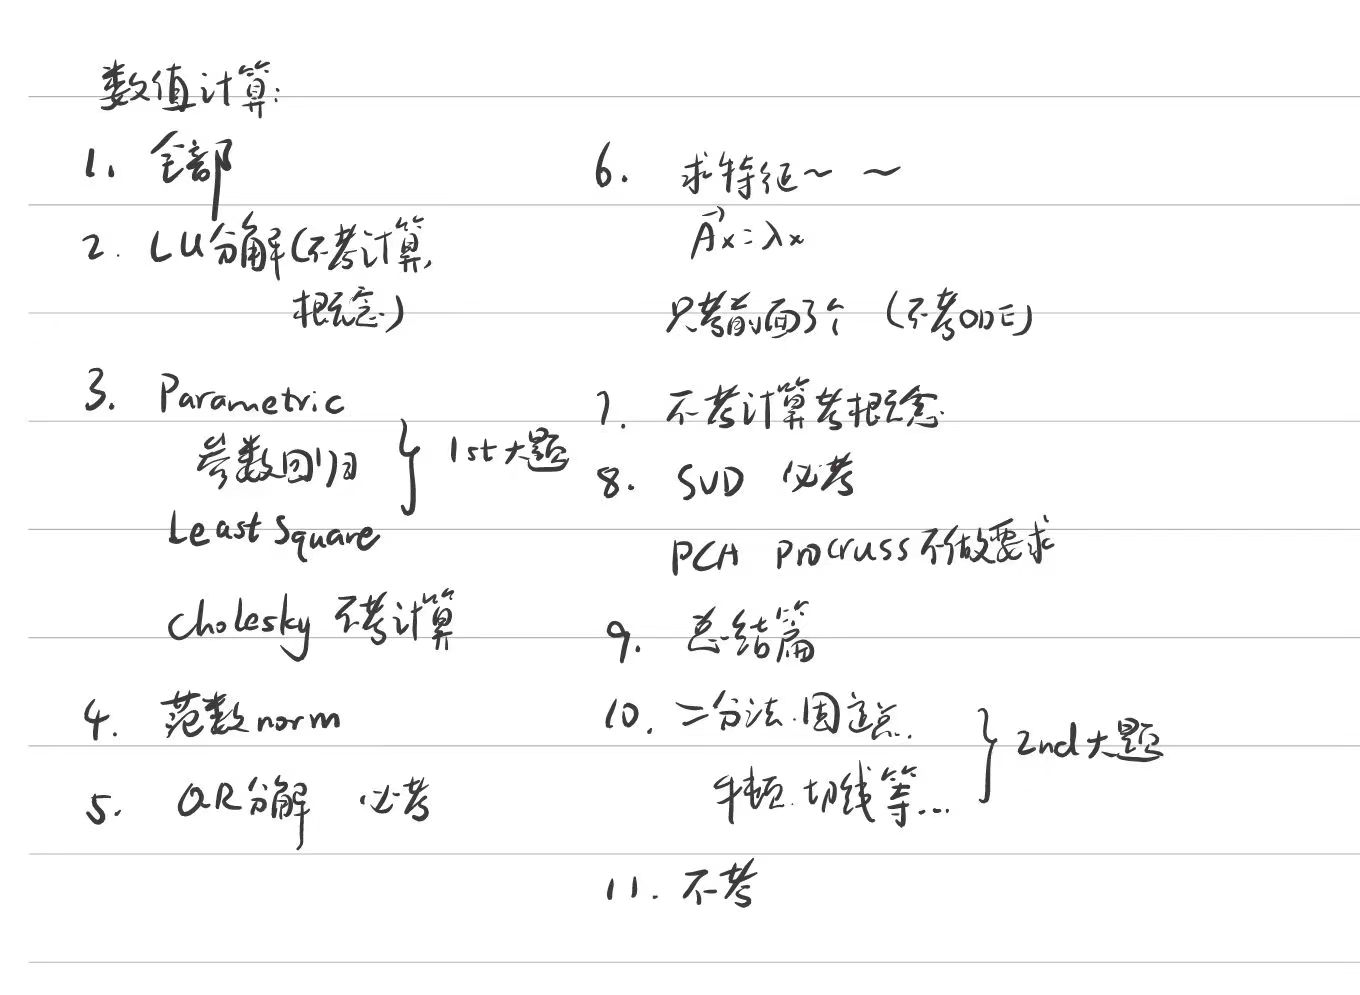 数值计算:
1. 全部
2. LU分解(不考计算,
概念)
3. Parametric
参数回归
Least Square
} 1st大题
Cholesky 不考计算
4. 范数norm
5. QR分解 必考
6. 求特征~ ~
A⃗x=λx
只考前面3个 (不考ODE)
7. 不考计算考概念
8. SVD 必考
PCA Procruss不做要求
9. 总结篇
10. 二分法.固定点.
牛顿.切线等...
} 2nd大题
11. 不考